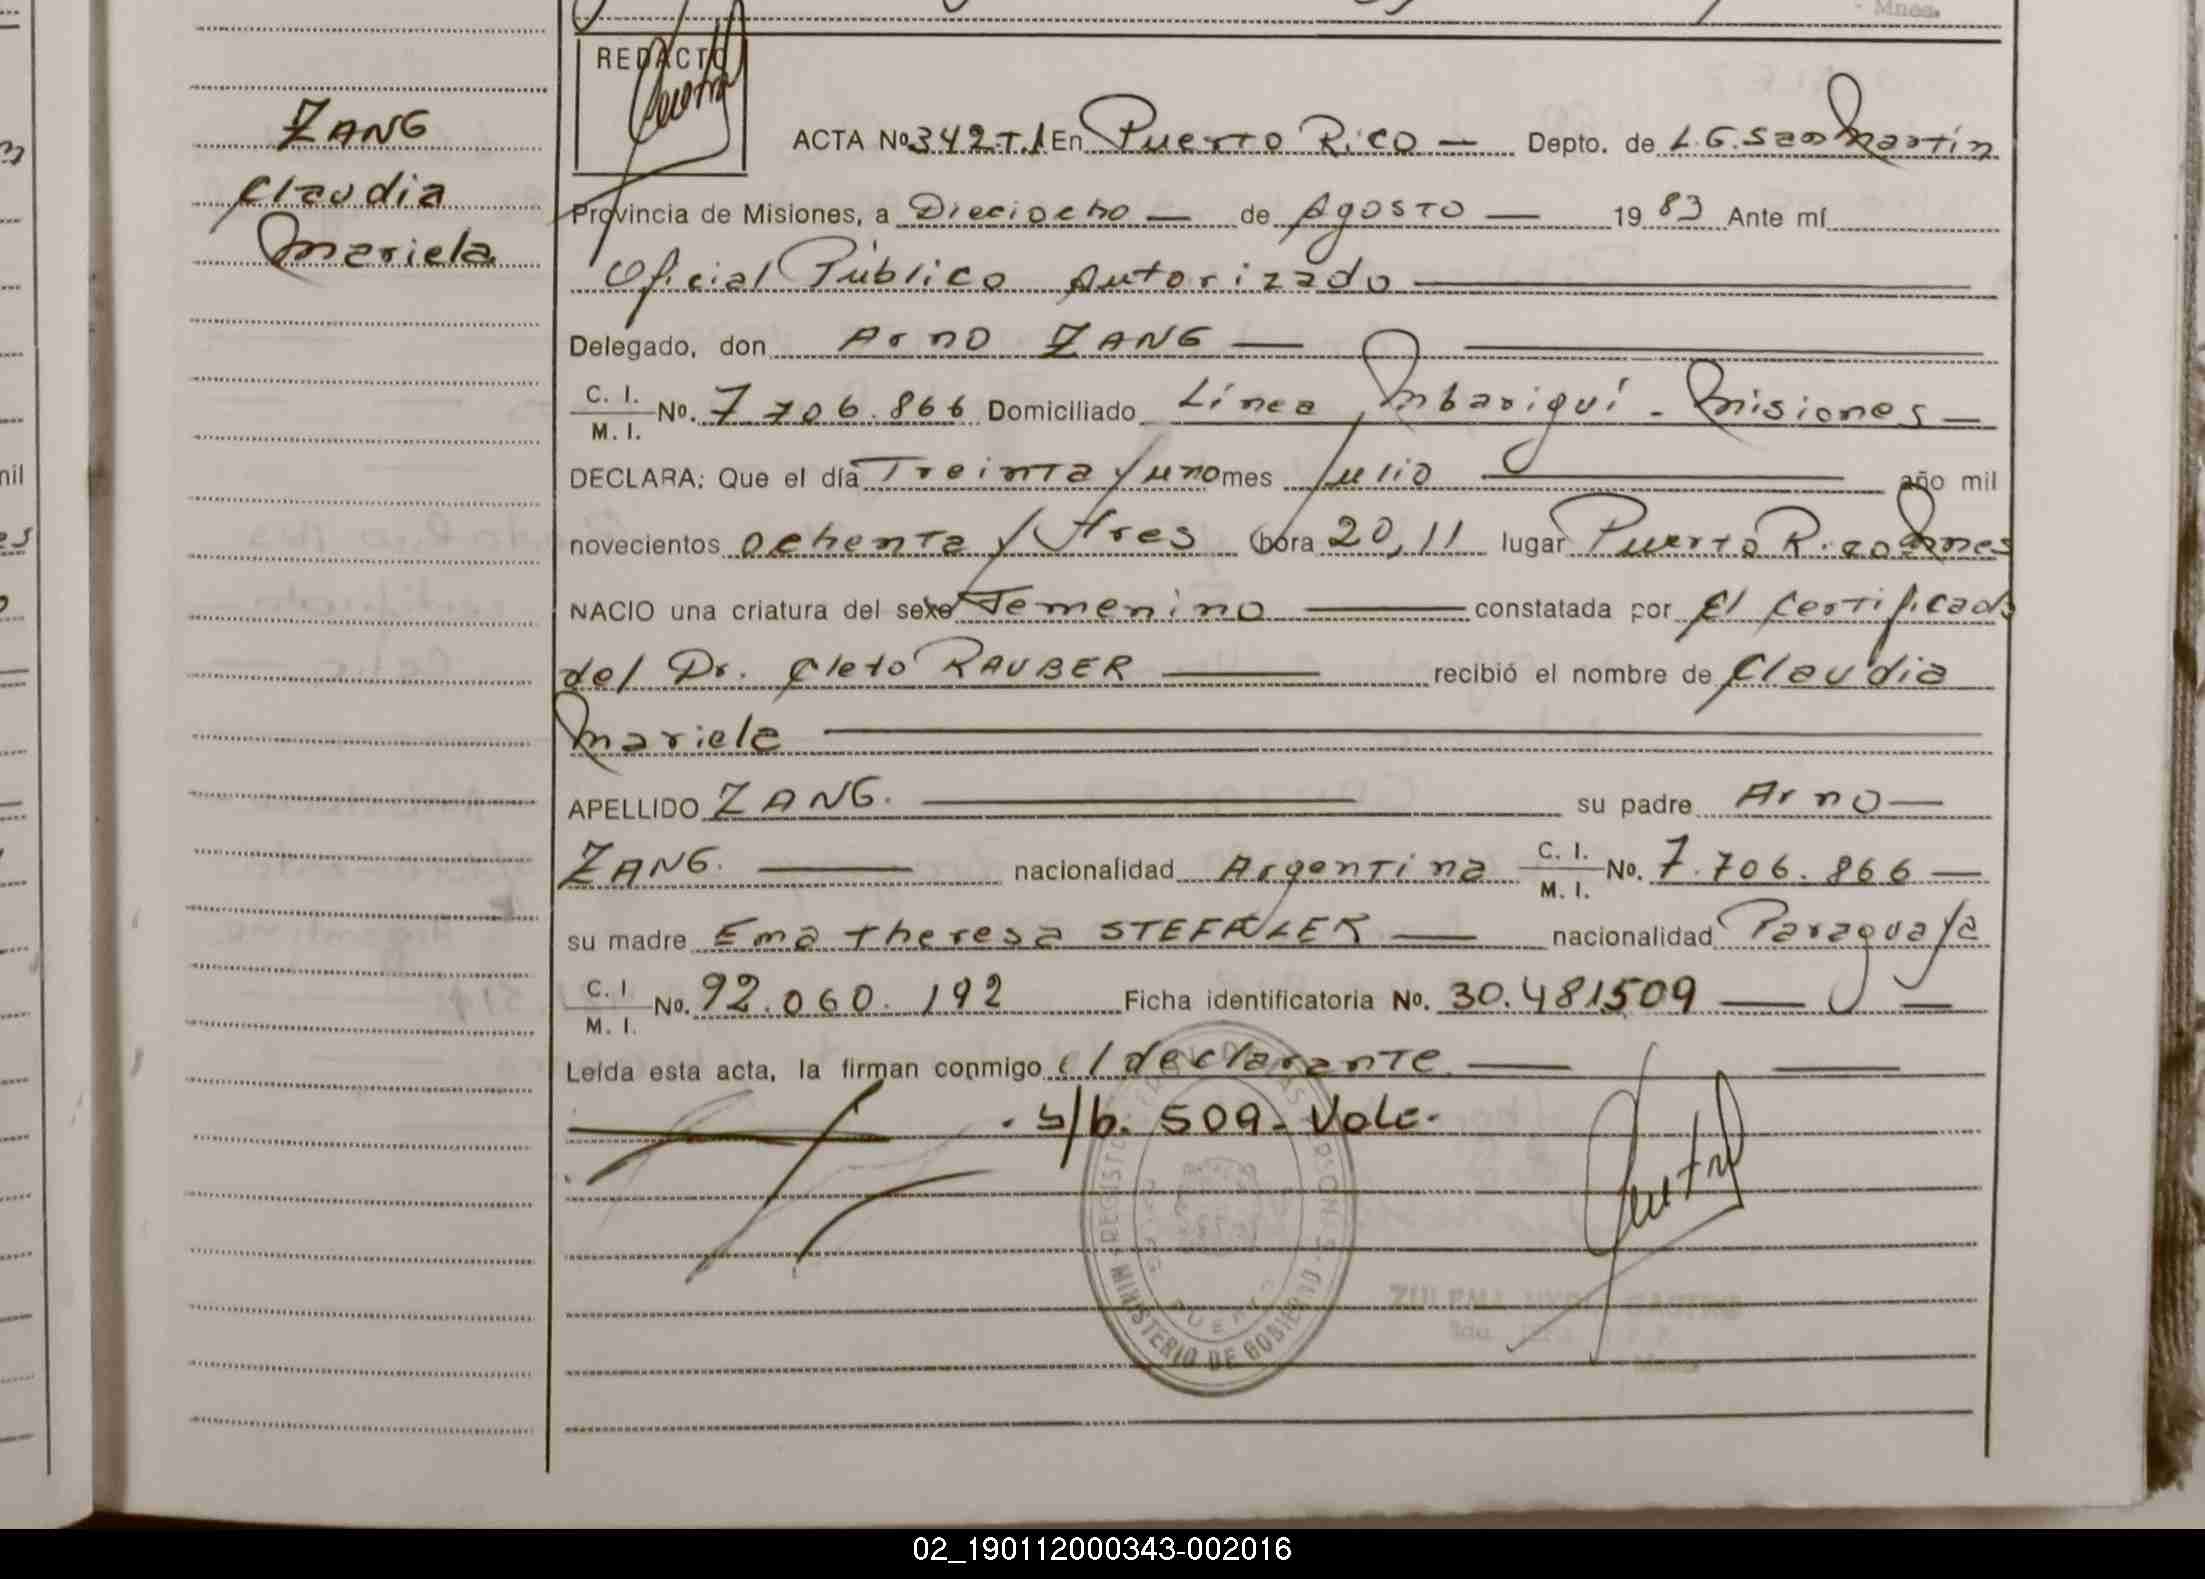 Mnes.
REDACTO
ZANG
Claudia
Mariela
ACTA Nº 342-T.1 En Puerto Rico — Depto. de L.G. San Martín
Provincia de Misiones, a Dieciocho — de Agosto — 1983 Ante mí
Oficial Público Autorizado
Delegado, don Arno ZANG —
C. I. M. I. No. 7.706.866 Domiciliado Línea Mbariguí - Misiones —
DECLARA; Que el día Treinta y uno mes Julio — año mil
novecientos ochenta y tres hora 20,11 lugar Puerto Rico Mnes
NACIO una criatura del sexo Femenino — constatada por El Certificado
del Dr. Cleto RAUBER — recibió el nombre de Claudia
Mariela
APELLIDO ZANG. — su padre Arno —
ZANG. — nacionalidad Argentina C. I. M. I. No. 7.706.866 —
su madre Ema Theresa — nacionalidad Paraguaya
C. I. M. I. No. 92.060.192 Ficha identificatoria No. 30.481509 —
Leída esta acta, la firman conmigo el declarante —
. s/b. 509- Vale.
MINISTERIO DE GOBIERNO
02_190112000343-002016